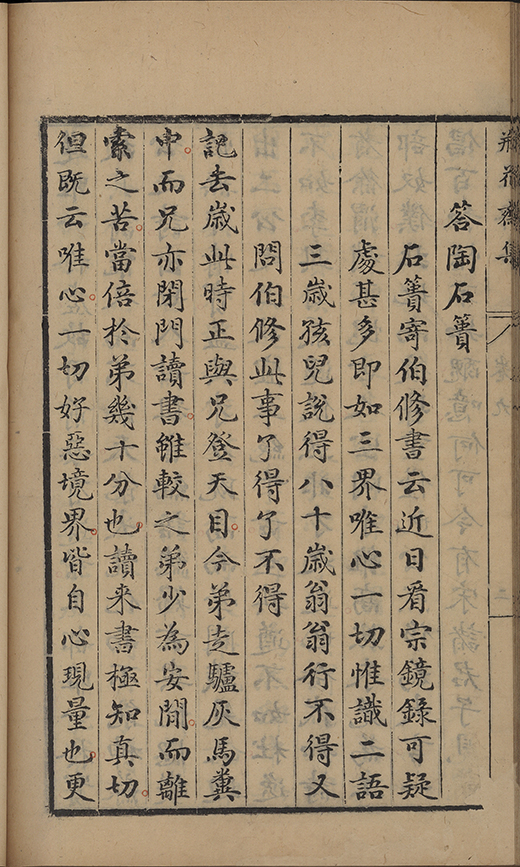 瓶花齋集
卷九
答陶石簣
石簣寄伯修書云近日看宗鏡錄可疑
處甚多即如三界唯心一切惟識二語
三歲孩兒說得八十歲翁翁行不得又
問伯修此事了得了不得
記去歲此時正與兄登天目。今弟走驢灰馬糞
中。而兄亦閉門讀書。雖較之弟少為安閒。而離
索之苦。當倍於弟幾十分也。讀來書極知真切。
但既云唯心。一切好惡境界。皆自心現量也。更